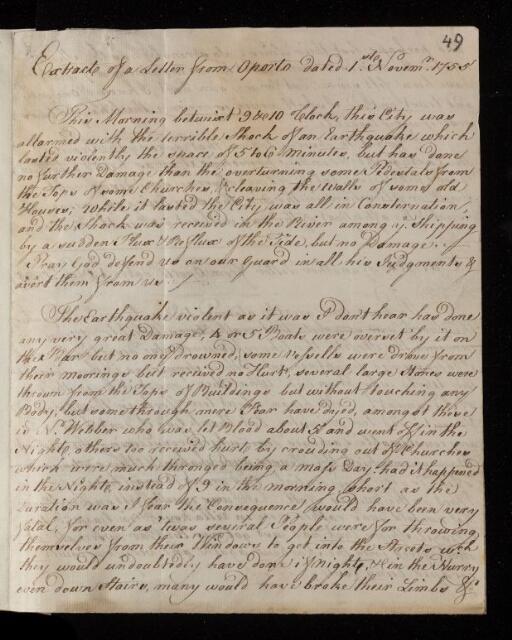 49
Extract of a Letter from Oporto dated 1st Novemr. 1755
This Morning betwixt 9 & 10 Clock, this City was
allarmed with the terrible Shock of an Earthquake which
lasted violently the space of 5 to 6 Minutes, but has done
no further Damage than the overturning some Pedestals from
the Tops of some Churches, & cleaving the Walls of some old
Houses; while it lasted the City was all in Consternation,
and the Shock was received in the River among ye Shipping
by a sudden Flux & Reflux of the Tide, but no Damage.
Pray God defend us on our Guard in all his Judgments &
avert them from us.
The Earthquake violent as it was I don't hear has done
any very great Damage, 4 or 5 Boats were overset by it on
the Bar but no one drowned, some Vessells were drove from
their moorings but received no Hurt, several large Stones were
thrown from the Tops of Buildings but without touching any
Body, but some through mere Fear have dyed, amongst these
is Webber who was let Blood about 5 and went off in the
Night, others too received hurt by crouding out of Churches
which were much thronged being a mass Day: had it happened
in the Night, instead of 9 in the morning, short as the
Duration was I fear the Consequence would have been very
fatal, for even as 'twas several People were for throwing
themselves from their Windows to get into the Streets wch.
they would undoubtedly have done in ye Night, & in the Hurry
even down Stairs, many would have broke their Limbs &c